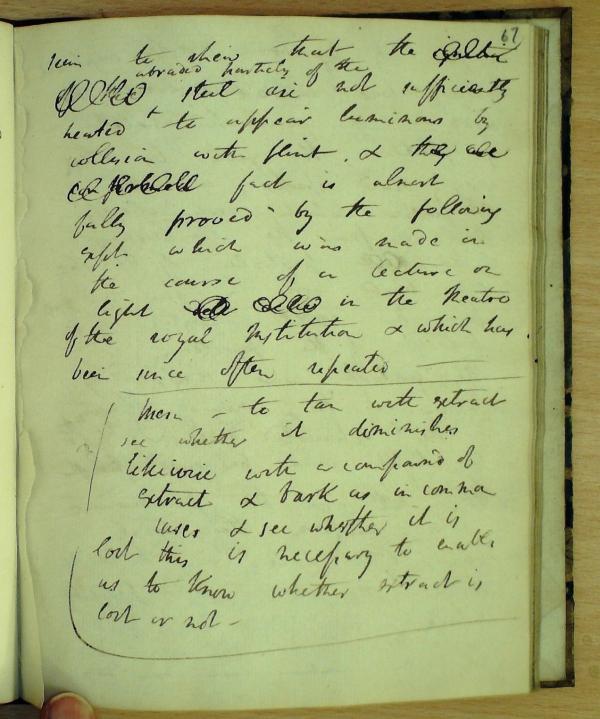 67
seem to shew that the
abraded particles of the
steel are not sufficiently
heated to appear luminous by
collision with flint. & they are
fact is almost
fully proved by the following
expt which was made in
the course of a lecture on
light in the theatre
of the royal Institution & which has
been since often repeated
Mem - to tan with extract
see whether it diminishes
Likewise with a compound of
extract & bark as in common
cases & see whether it is
lost this is necessary to enable
us to know whether extract is
lost or not -